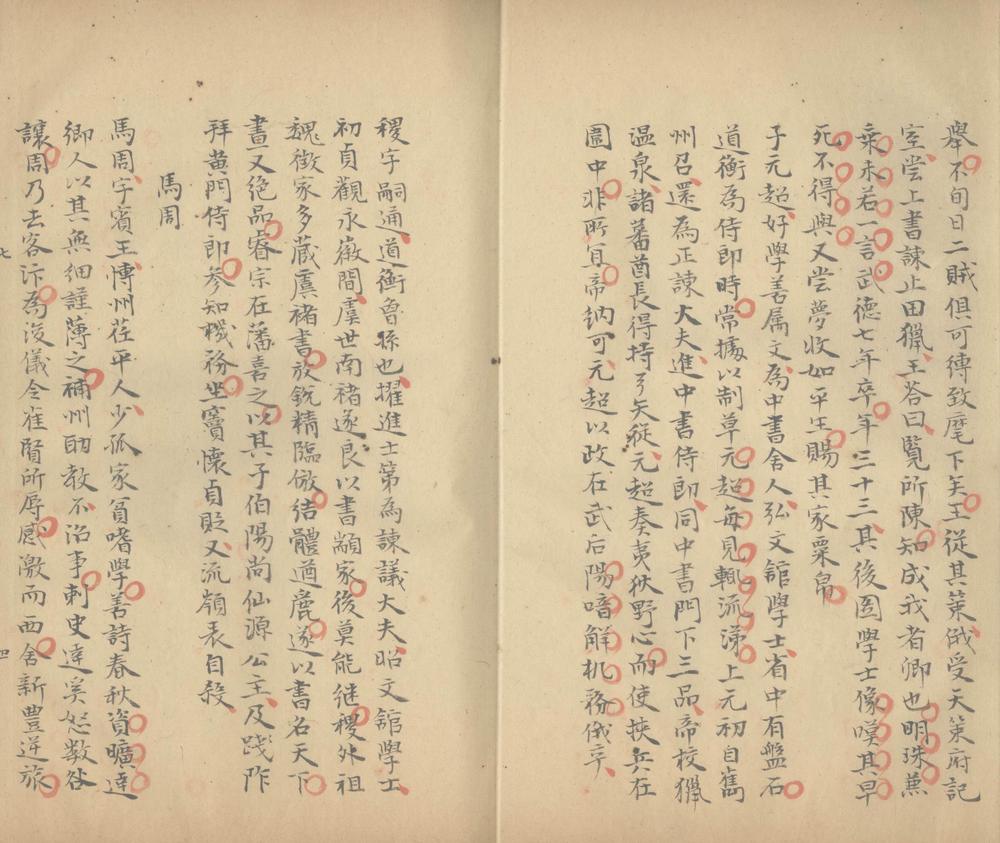 舉不旬日二賊俱可縛致麾下矣王從其策俄受天策府記
室嘗上書諫止田獵王答曰覽所陳知成我者卿也明珠兼
乘未若一言武德七年卒年三十三其後圖學士像嘆其早
死不得與又嘗夢收如平生賜其家粟帛
子元超好學善属文為中書舍人弘文舘學士省中有盤石
道衡為侍郎時常據以制草元超每見輒流涕上元初自雟
州召還為正諫大夫進中書侍郎同中書門下三品帝校獵
温泉諸蕃酋長得持弓矢從元超奏夷狄野心而使挾兵在
圍中非所宜帝納可元超以政在武后陽喑解机務俄卒
稷字嗣通道衡曾孫也擢進士第為諫議大夫昭文舘學士
初貞觀永徽間虞世南褚遂良以書顓家後莫能继稷外祖
魏徵家多蔵虞褚書放銳精臨倣結體遒麗遂以書名天下
畫又绝品睿宗在藩喜之以其子伯陽尚仙源公主及踐阼
拜黄門侍郎参知機務坐竇懷貞貶又流嶺表自殺
馬周
馬周字賓王博州茌平人少孤家貧嗜學善詩春秋資曠達
鄉人以其無細謹薄之補州助教不治事刺史達奚恕數咎
讓周乃去客汴為浚儀令崔賢所辱感激而西舍新豊逆旅
七
四